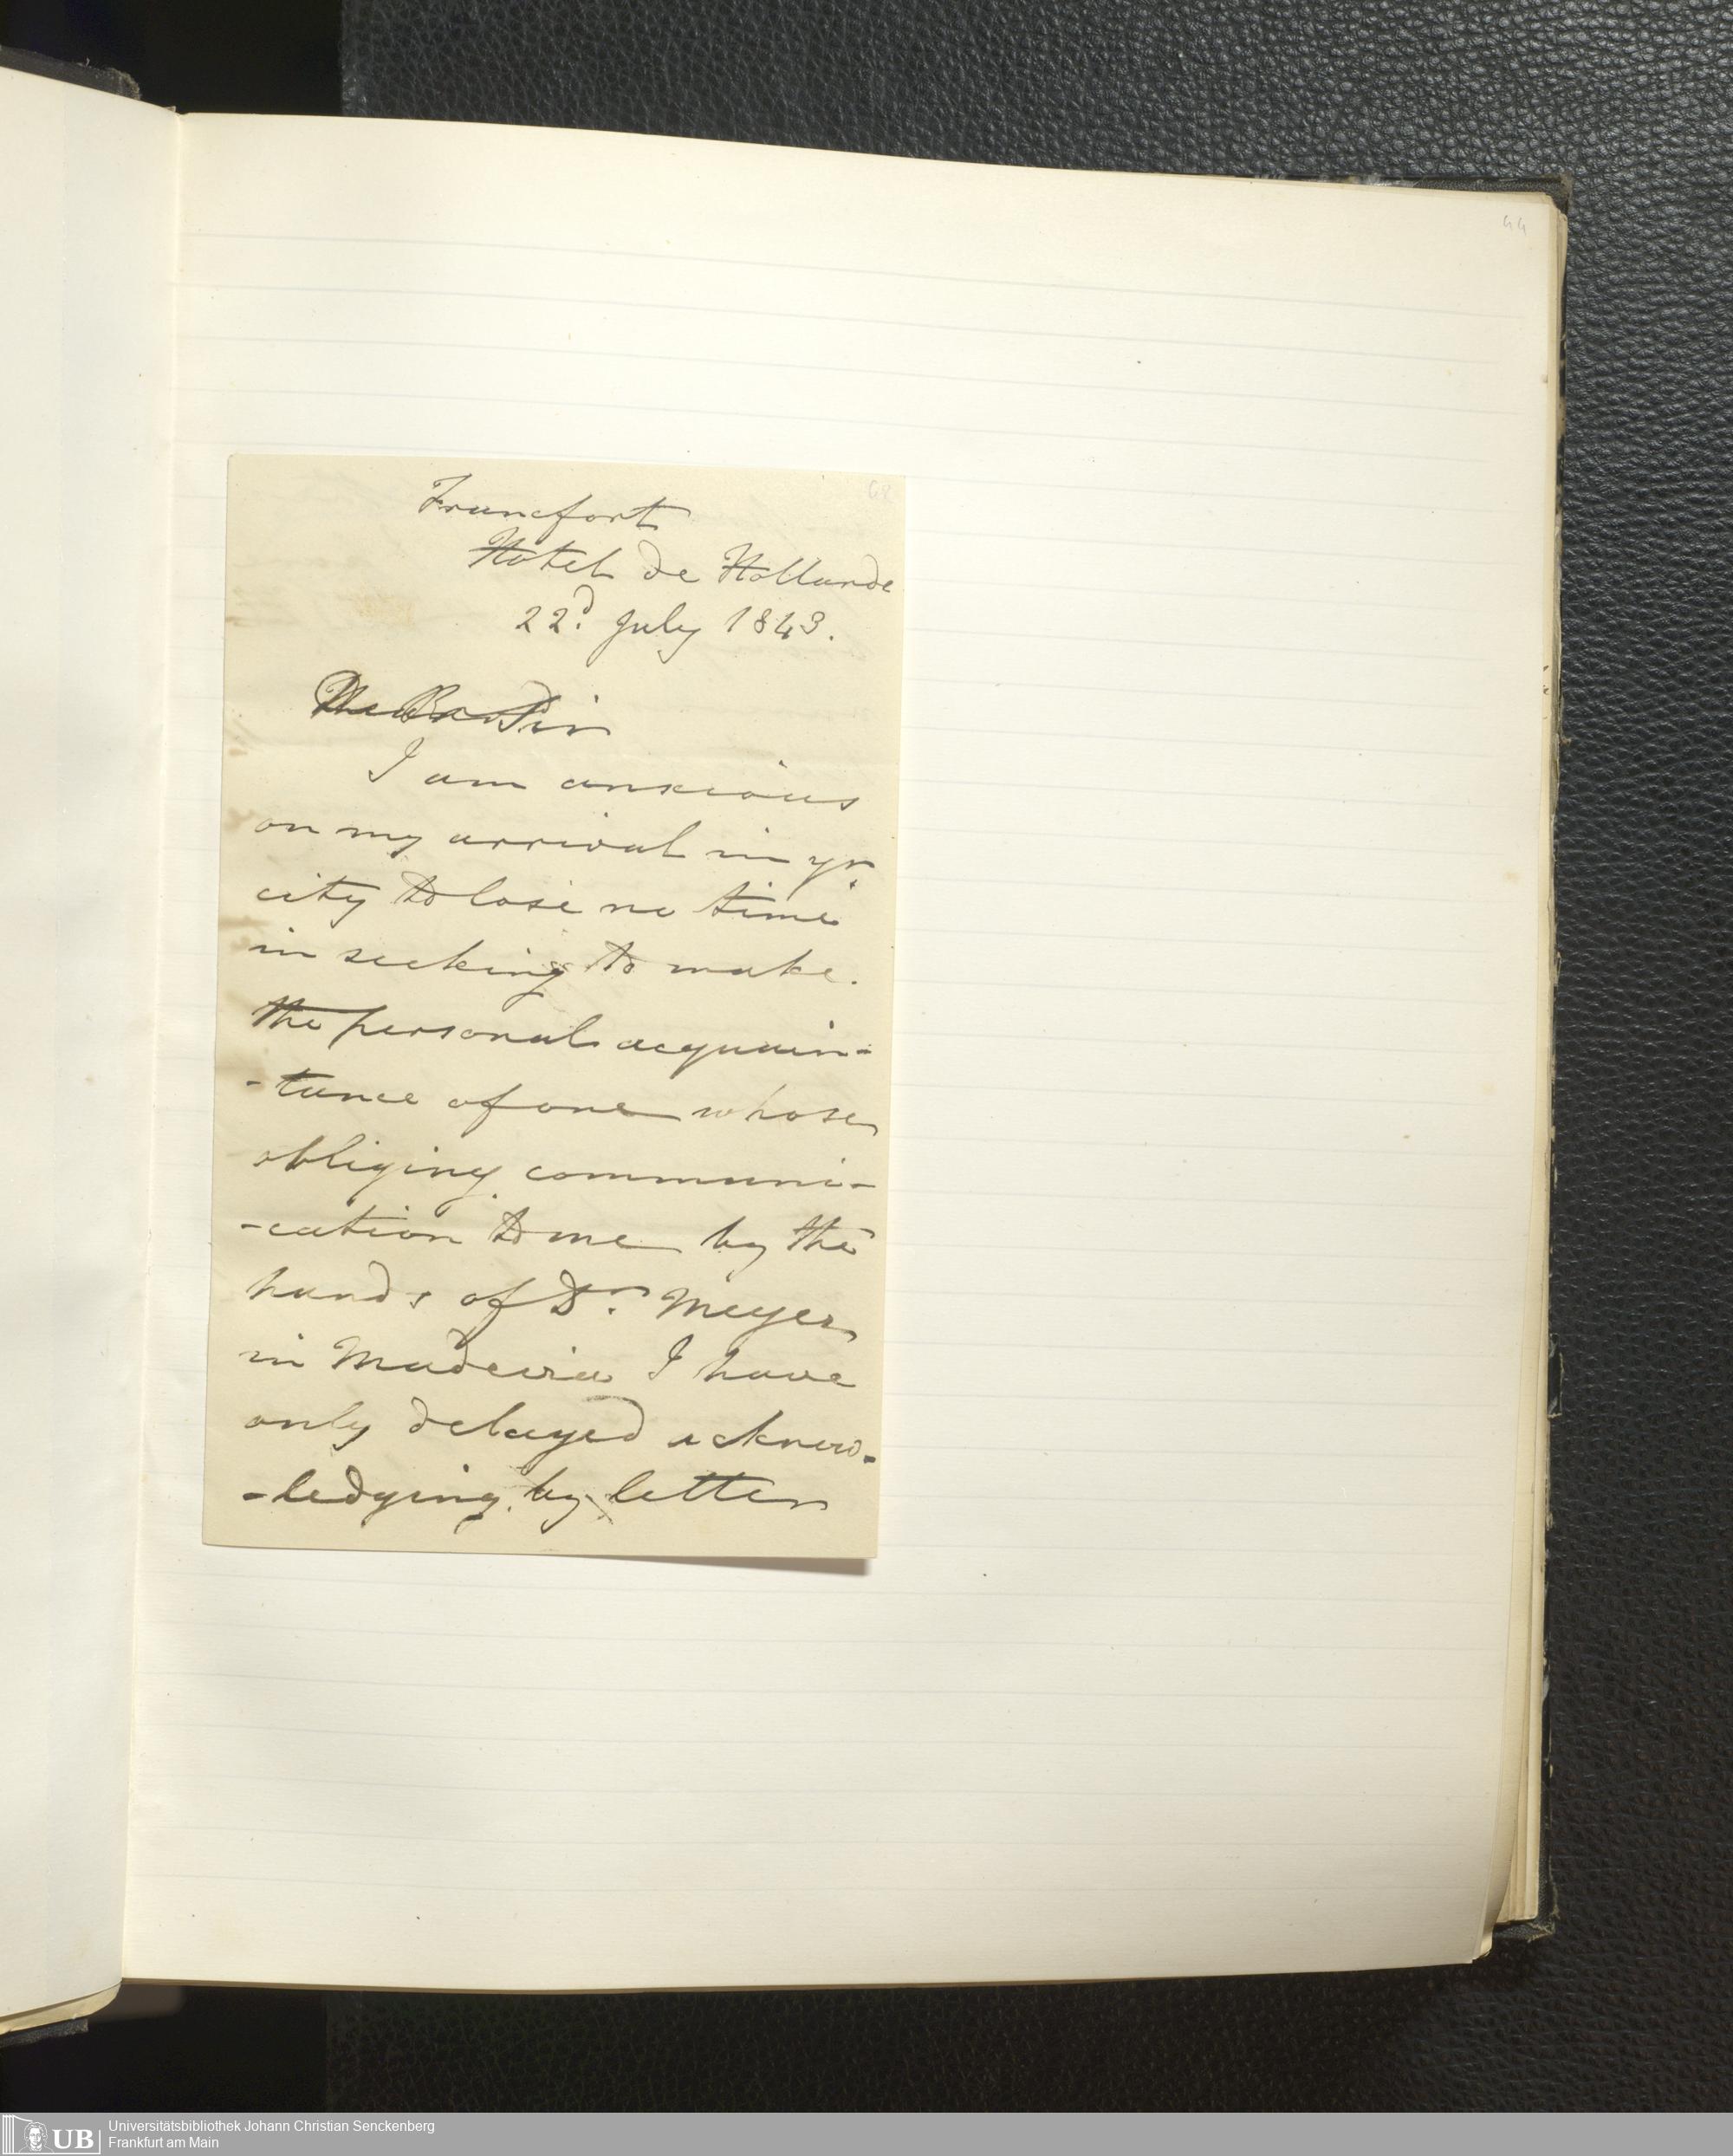 44
68
Francfort
Hotel de Hollande
22d. July 1843.
Sir
I am anxious
on my arrival in yr.
city to lose no time
in seeking to make.
the personal acquain-
-tance of one whose
obliging communi-
-cation to me by the
hands of Dr. Meyer
in Madeira I have
only delayed acknow-
-ledging by letter
UB
Universitätsbibliothek Johann Christian Senckenberg
Frankfurt am Main